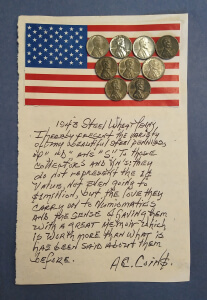 1943 Steel Wheat Penny,
I hereby present the variety
of my beautiful steel pennies,
"D" AND "S" to those
collectors and it's: they
do not represent the 1¢
value, not even going to
$1million, but the love they
carry on to Numismatics
and the sense of having them
with a great memoir which
is worth more than what is
has been said about them
before. A.C. Coins.